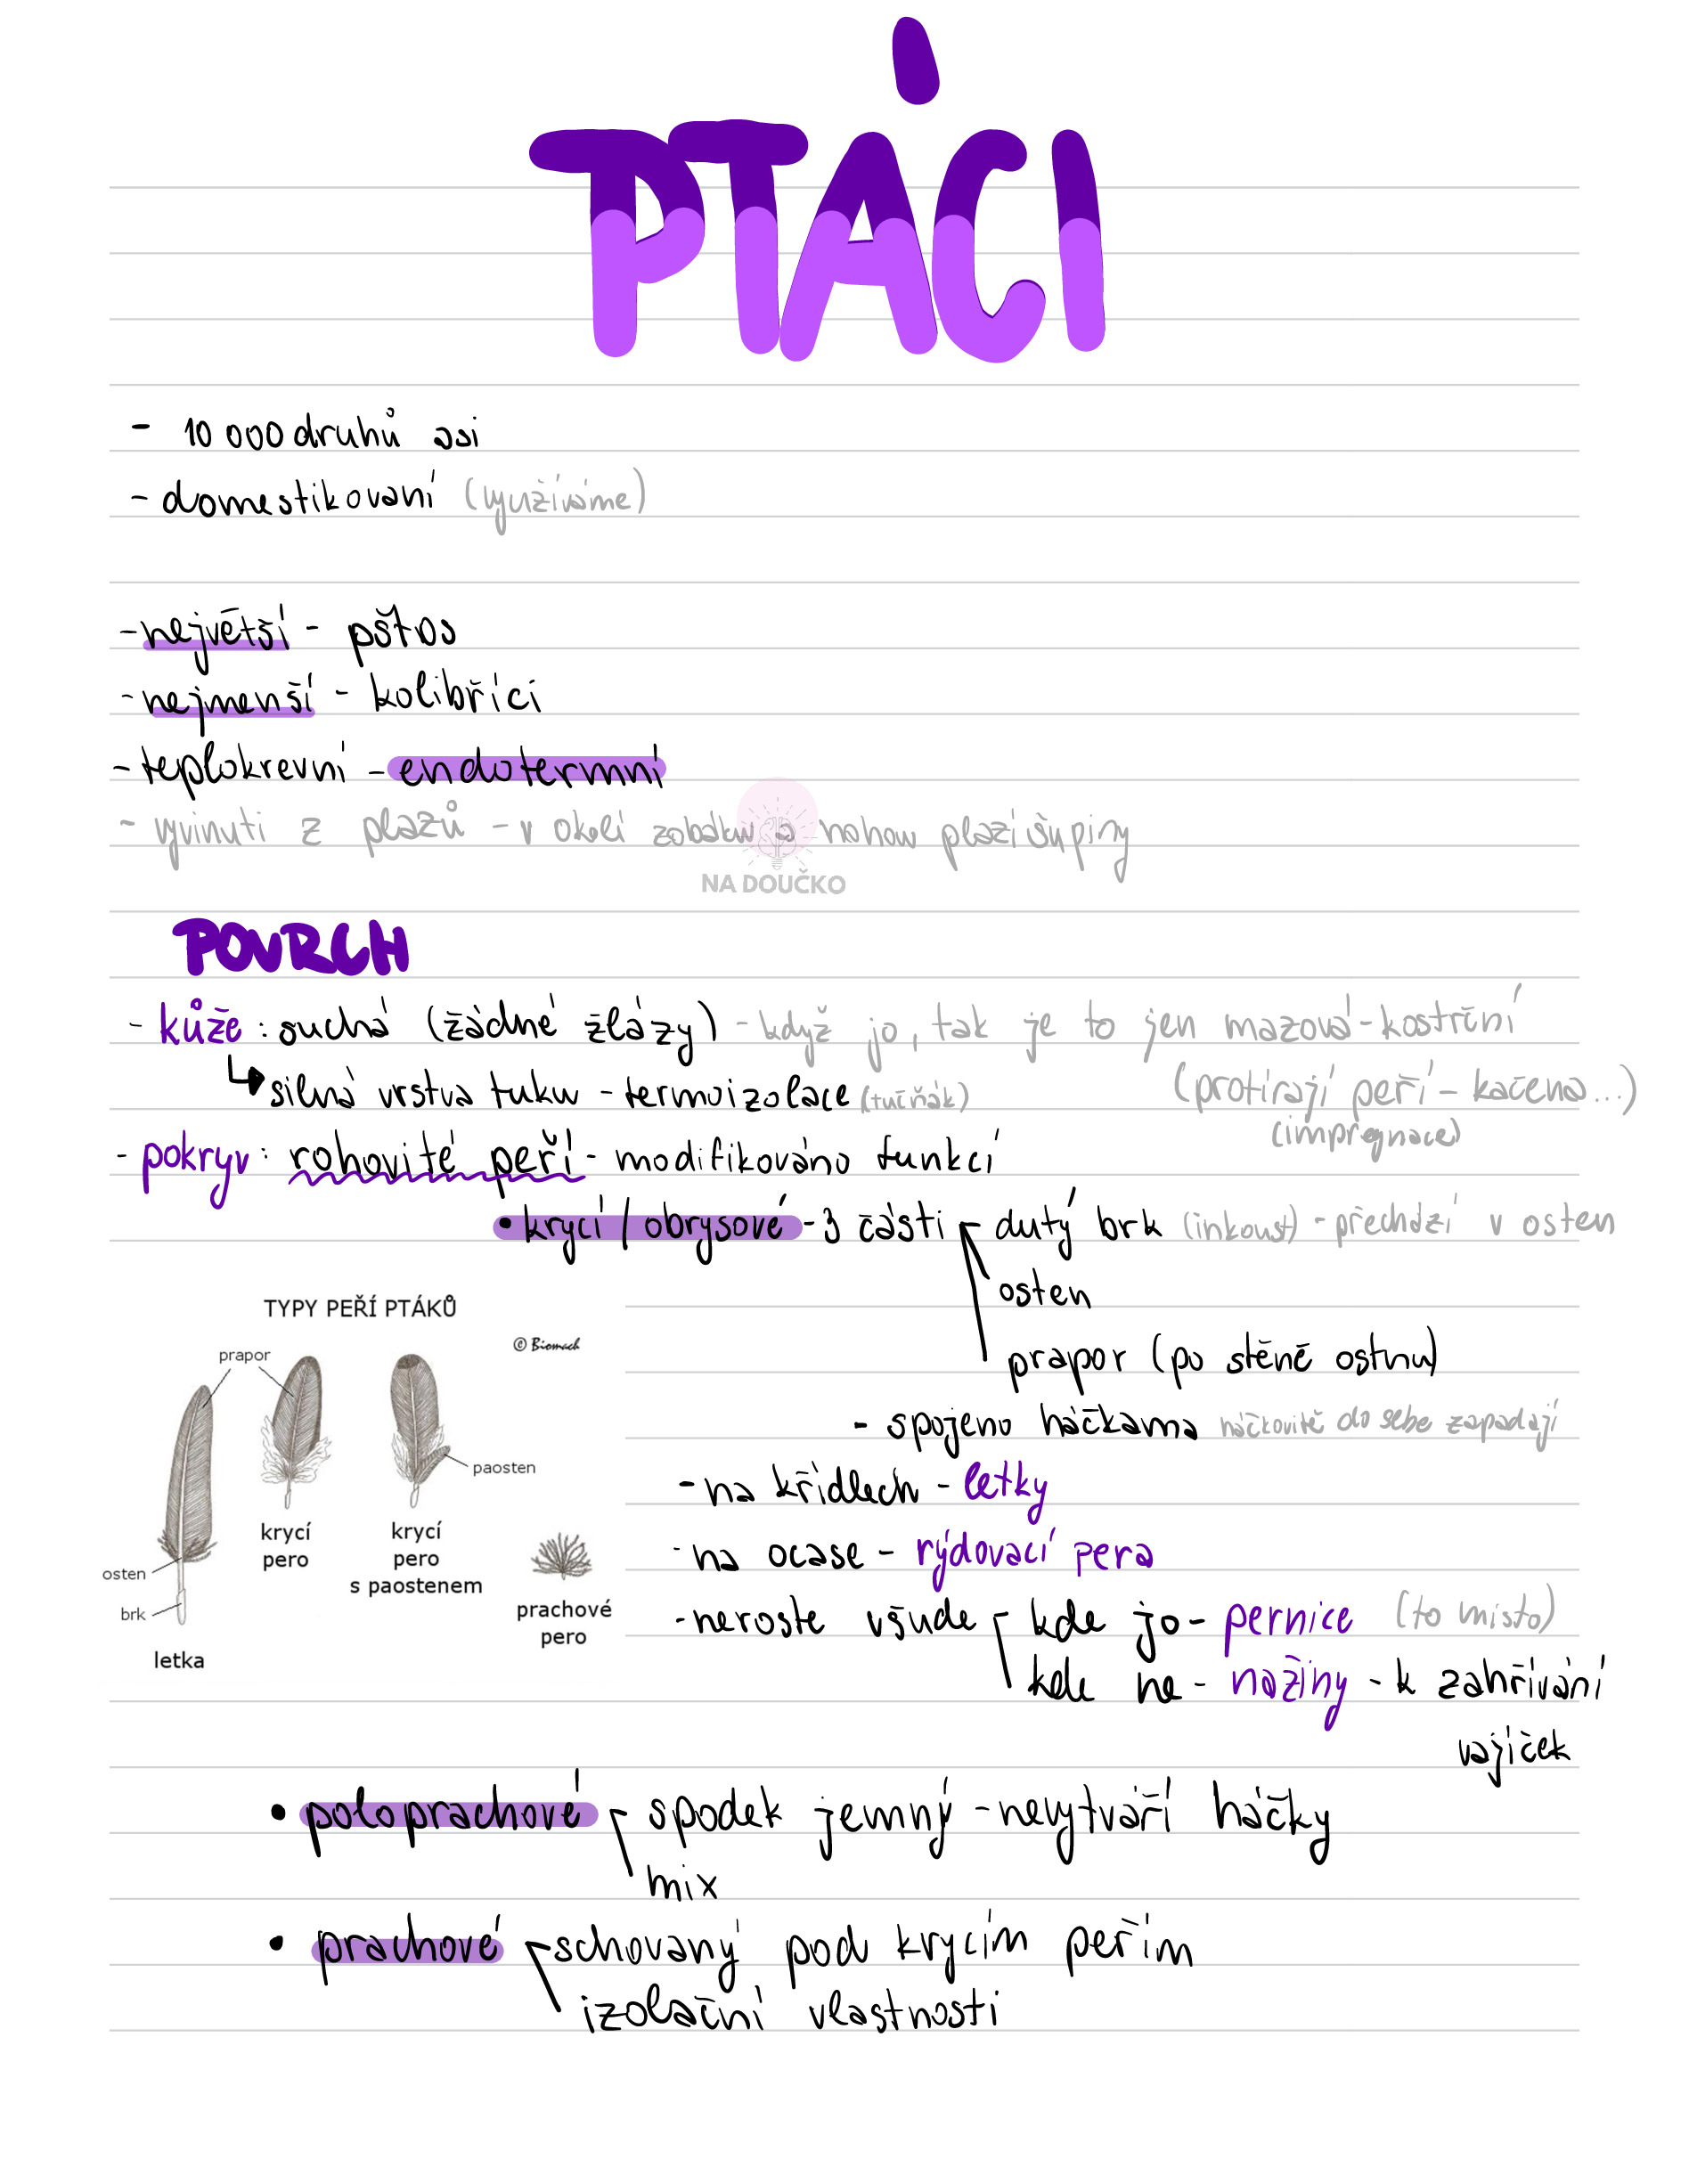 PTÁCI
- 10 000 druhů asi
- domestikovaní (využíváme)
- největší - pštos
- nejmenší - kolibříci
- teplokrevní - endotermní
- vyvinuti z plazů - v okolí zobáku a nohou plazí šupiny
NA DOUČKO
POVRCH
- kůže: suchá (žádné žlázy) - když jo, tak je to jen mazová - kostrční
silná vrstva tuku - termoizolace (tučňák) (protírají peří - kačena...)
(impregnace)
- pokryv: rohovité peří - modifikováno funkcí
• krycí / obrysové - 3 části dutý brk (inkoust) - přechází v osten
osten
prapor (po stěně ostnu)
- spojeno háčkama háčkovitě do sebe zapadají
- na křídlech - letky
- na ocase - rýdovací pera
- neroste všude kde jo - pernice (to místo)
kde ne - nažiny - k zahřívání
vajíček
TYPY PEŘÍ PTÁKŮ
© Biomach
prapor
paosten
osten
brk
letka
krycí
pero
krycí
pero
s paostenem
prachové
pero
• poloprachové spodek jemný - nevytváří háčky
mix
• prachové schovaný pod krycím peřím
izolační vlastnosti